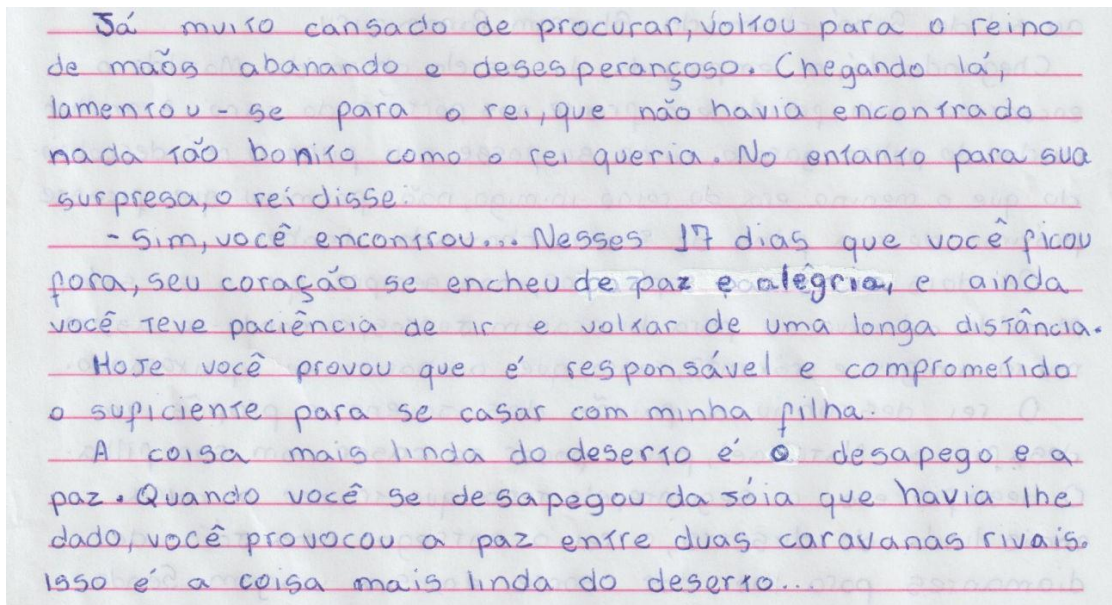 Já muito cansado de procurar, voltou para o reino
de mãos abanando e desesperançoso. Chegando lá,
lamentou-se para o rei, que não havia encontrado
nada tão bonito como o rei queria. No entanto para sua
surpresa, o rei disse:
- Sim, você encontrou... Nesses 17 dias que você ficou
fora, seu coração se encheu de paz e alegria, e ainda
você teve paciência de ir e voltar de uma longa distância.
Hoje você provou que é responsável e comprometido
o suficiente para se casar com minha filha.
A coisa mais linda do deserto é o desapego e a
paz. Quando você se desapegou da jóia que havia lhe
dado, você provocou a paz entre duas caravanas rivais.
Isso é a coisa mais linda do deserto...